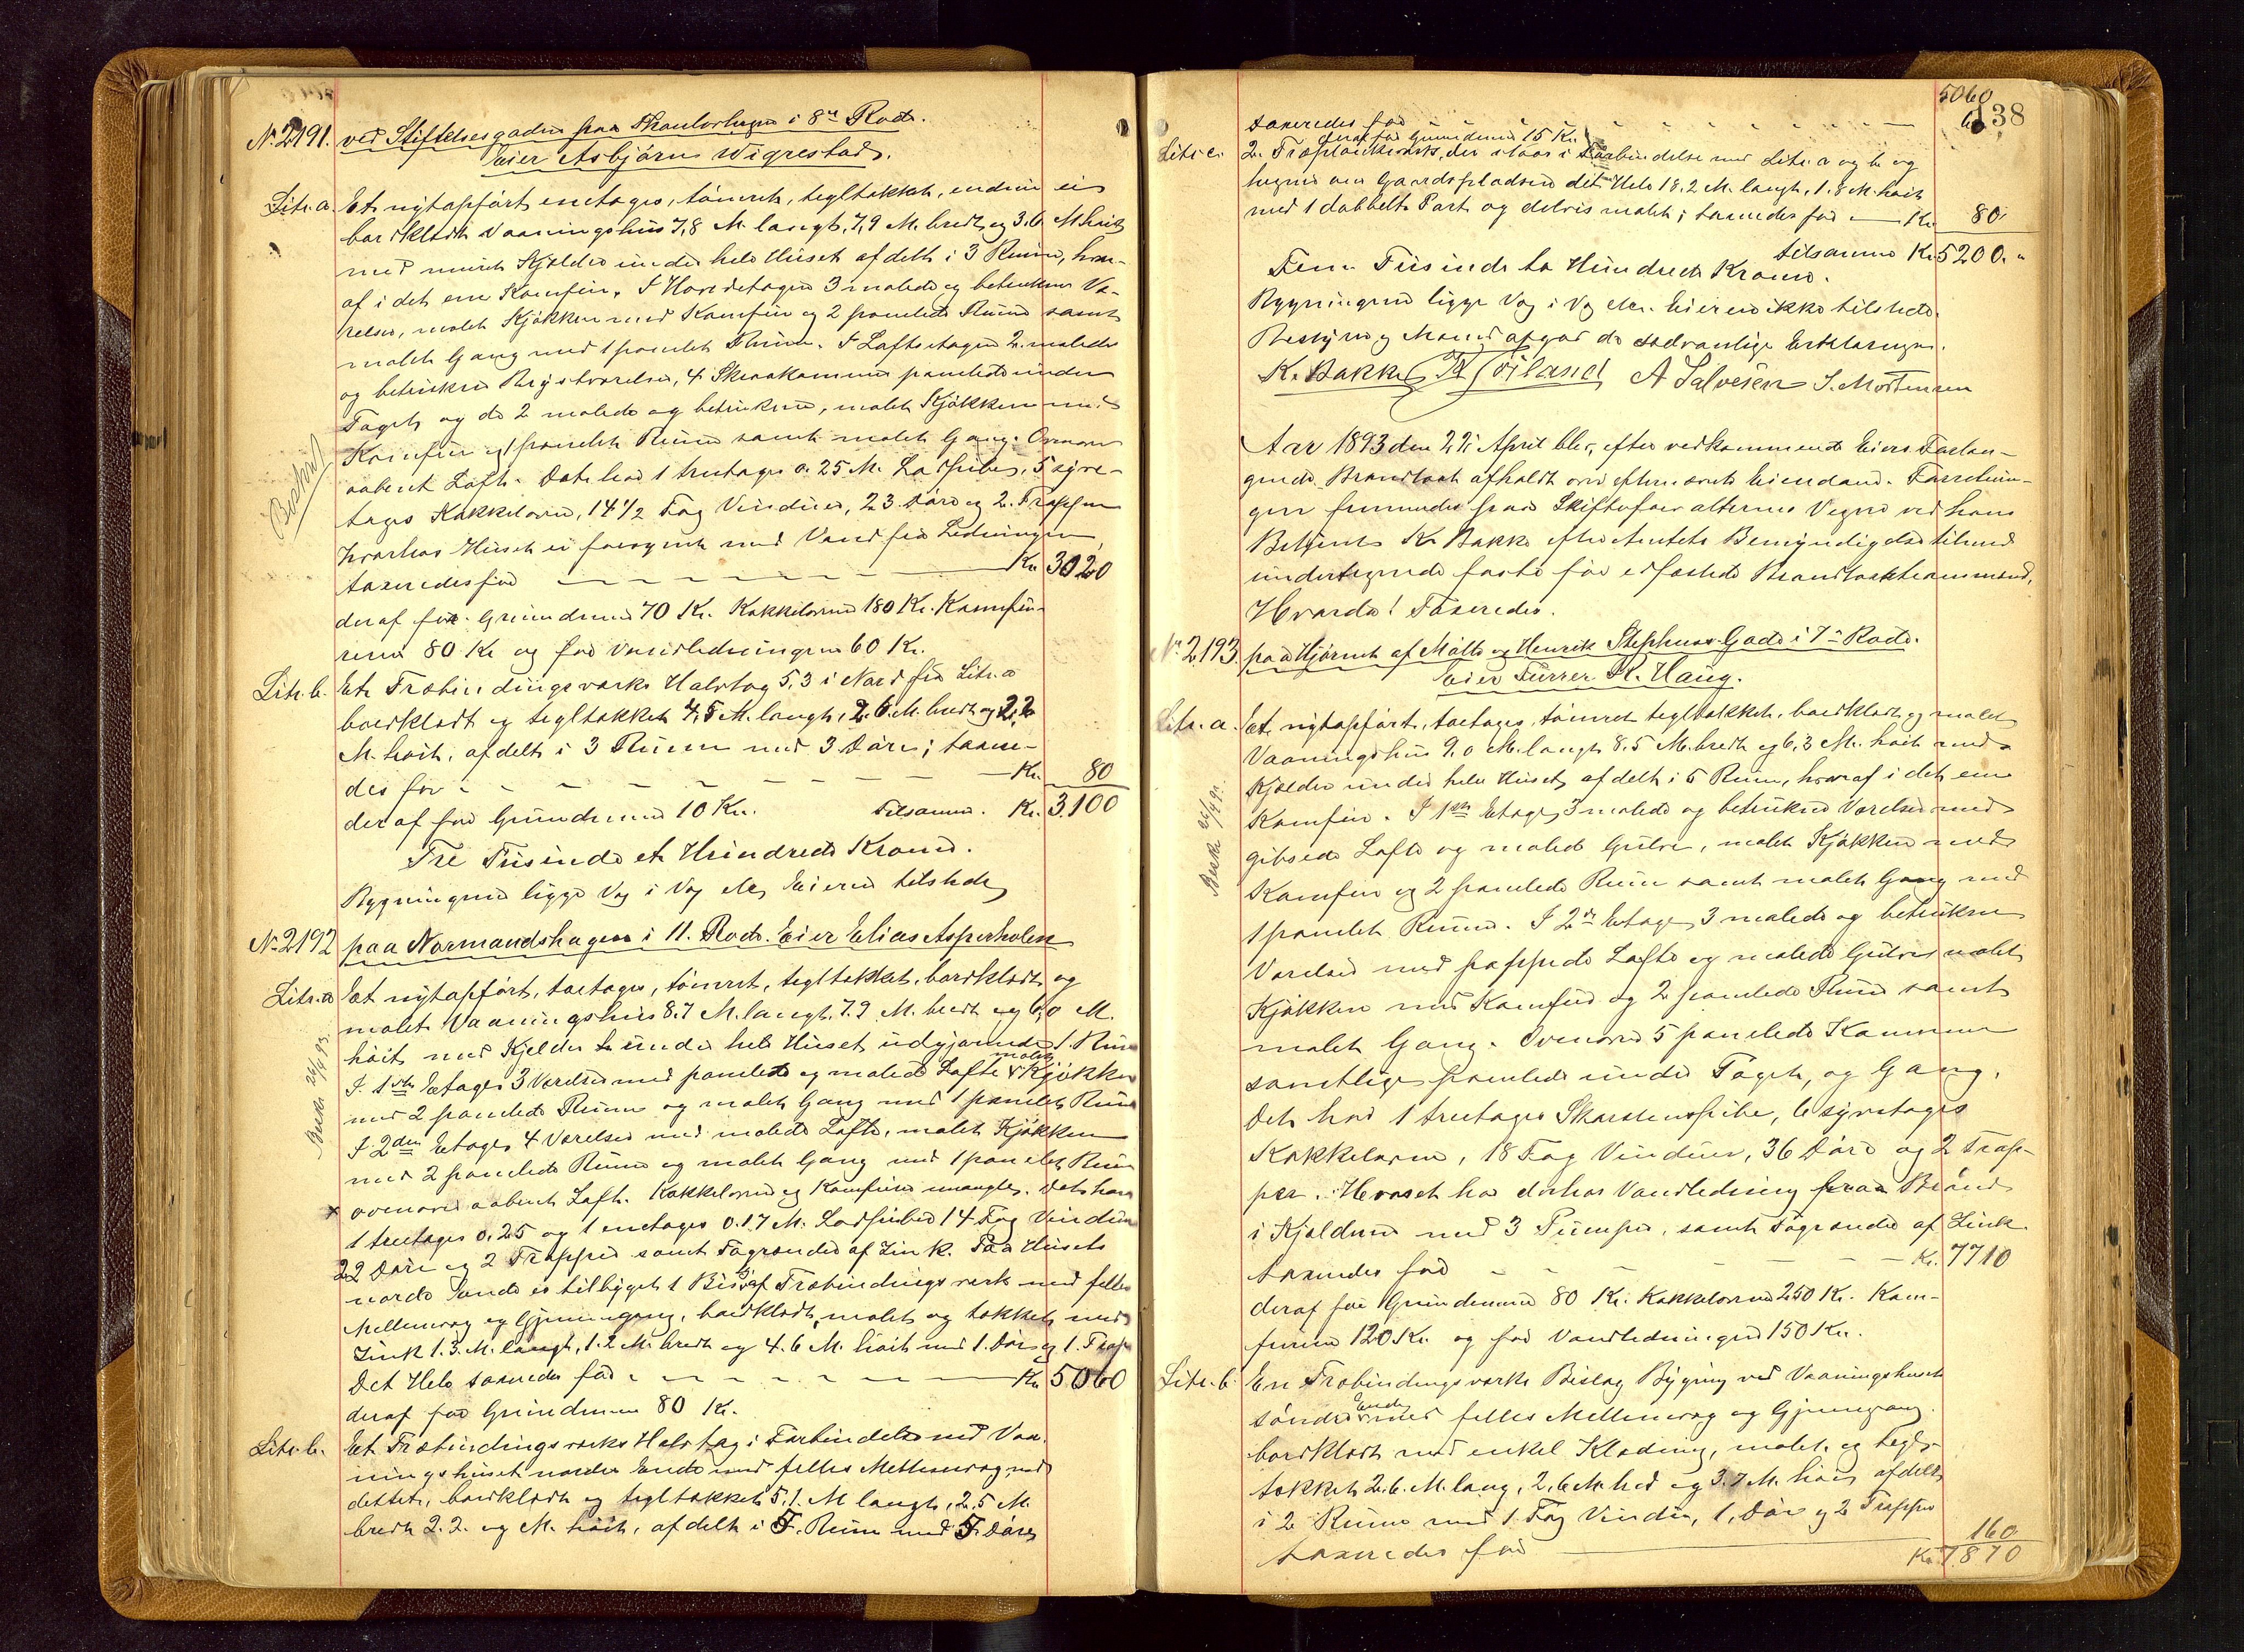 No 2191. ved Stiftelsesgaden paa Skanlorhagen i 8de Rode.
Eier Asbjørn Wigrestad.
Litr. a. Et nytopført enetages, tømret, tegltækket, endnu ei
bordklædt Vaaningshus 7,8 M. langt, 7,9 M. bredt og 3.6 M høit
med muret Kjælder under hele Huset afdelt i 3 Rum, hvor-
af i det ene Komfur. I Hovedetagen 3 malede og betrukne Væ-
relser, malet Kjøkken med Komfur og 2 panelede Rum samt
malet Gang med 1 panelet Rum. I Loftsetagen 2 malede
og betrukne Kvistværelser, 4 Skraakammer panelede under
Taget, og de 2 malede og betrukne, malet Kjøkken med
Komfur og 1 panelet Rum samt malet Gang. Ovenover
aabent Loft. Det har 1 treetages a 25 M. Ladpibe, 5 syre-
tages Kakkelovne, 14 1/2 Fag Vinduer, 23 Døre og 2 Trapper
hvorhos Huset er forsynet med Vand fra Ledningen,
taxeredes for Kr. 3020
deraf for Grundmur 70 Kr. Kakkelovne 180 Kr. Komfu-
rerne 80 Kr og for Vandledningen 60 Kr.
Litr. b. Et Træbindingsværks Halvtag 5,3 i Nord fra Litr. a
bordklædt og tegltækket 4,5 M. langt, 2.6 M. bredt og 2,2
M. høit, afdelt i 3 Rum med 3 Døre; taxere-
des for Kr. 80
deraf for Grundmur 10 Kr. Tilsamm. Kr. 3.100
Tre Tusinde et Hundrede Kroner.
Bygningerne ligge Væg i Væg etc, Eieren tilstede
No 2192 paa Normandshagen i 11. Rode. Eier Elias Asperholen
Litr. a Et nytopført, toetages, tømret, tegltækket, bordklædt og
malet Vaaningshus 8.7 M. langt, 7.9 M. bredt og 6,0 M.
høit med Kjelder under hele Huset udgjørende 1 Rum
I 1ste Etage 3 Værelser med panelede og malede Lofte, malet Kjøkken
med 2 panelede Rum og malet Gang med 1 panelet Rum
I 2den Etage 4 Værelser med malede Lofte, malet Kjøkken
med 2 panelede Rum og malet Gang med 1 panelet Rum
ovenover aabent Loft. Kakkelovne og Komfurer mangler. Det har
1 treetages a. 25 og 1 enetages a. 17 M. Ladpiber 14 Fag Vinduer
22 Døre og 2 Trapper samt Tagrender af Zink. Paa Husets
nordre Ende er tilbygget 1 Bislag af Træbindingsverk med felles
Mellemvæg og Gjennemgang, bordklædt, malet og tækket med
Zink 1.3. M. langt, 1.2 M. bredt og 4.6 M. høit med 1 Dør og 1. Trap
Det Hele taxeredes for Kr 5060
deraf for Grundmur 80 Kr.
Litr. b. Et Træbindingsværks Halvtag i Forbindelse med Vaa-
ningshuset nordre Ende med felles Mellemvæg med
dettet, bordklædt og tegltækket 5,1. M langt, 2,5 M.
bredt 2.2. og M. høit, afdelt i 5. Rum med 5 Døre
Beskr. 26/4 93.
5060
138
taxeredes for 60,
deraf for Grundmur 15 Kr.
Litr. c. 2. Træplankeværk, der staar i Forbindelse med Litr. a og b og
hegner om Gaardspladsen det Hele 18.2 M. langt, 1.8 M. høit
med 1 dobbelt Port og delvis malet; taxeredes for Kr. 80
tilsamme Kr 5200.
Fem Tusinde to Hundrede Kroner.
Bygningerne ligge Væg i Væg etc. Eieren ikke tilstede.
Bestyrer og Mænd afgav de sædvanlige Erklæringer.
K. Bakke A Salvesen S. Mortensen
Aar 1893 den 22 April blev, efter vedkommende Eiers Forlan-
gende Brandtaxt afholdt over efternævnte Eiendom. Forretnin-
gen fremmedes paa Skiftefoervalterens Vegne ved hans
Betjent K. Bakke efter Amtets Bemyndigelse tilmed
undertegnede faste for edfæstede Brandtaxtionsmænd,
Hvorda! Taxeredes.
No 2193 paa Hjørnet af Møllo og Henrik Stephens Gade i 7de Rode.
Eier Furrer R. Haug.
Litr. a. Et nytopført, toetages, tømret tegltækket, bordklædt og malet
Vaaningshus 9,0 M. langt 8.5 M. bredt og 6,3 M. høit med
Kjælder under hele Huset, afdelt i 5 Rum, hvoraf i det ene
Komfur. I 1ste Etage 3 malede og betrukne Værelser med
gibsede Lofte og malede Gulve, malet Kjøkken med
Komfur og 2 panelede Rum samt malet Gang med
1 panelet Rum. I 2de Etage 3 malede og betrukne
Værelser med pappede Lofte og malede Gulve, malet
Kjøkken med Komfur og 2 panelede Rum samt
malet Gang. Ovenover 5 panelede Kammer
samtlige panelede under Taget, og Gang.
Det har 1 treetages Skorstenspibe, 6 syvetages
Kakkelovne, 18 Fag Vinduer, 36 Døre og 2 Trap-
per. Huset har derhos Vandledning fraa Brønd
i Kjælderen med 3 Pumper, samt Tagrender af Zink
taxeredes for Kr. 7710
deraf for Grundmur 80 Kr. Kakkelovne 250 Kr. Kom-
furene 120 Kr. og for Vandledningen 150 Kr.
Beskr 26/4 93.
Litr. b. En Træbindingsværks Bislag Bygning ved Vaaningshuset
søndre Ende med felles Mellemvæg og Gjennegang
bordklædt med enkel Klædning, malet og tegl-
tækket 2.6. M. lang, 2,6 M. bred og 3.7 M. høi, afdelt
i 2 Rum med 1 Fag Vindu, 1, Dør og 2 Trapper
taxeredes for 160
Kr 7870